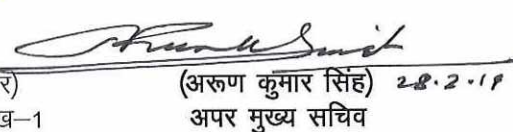 र) (अरूण कुमार सिंह) 28.2.19
ख–1 अपर मुख्य सचिव